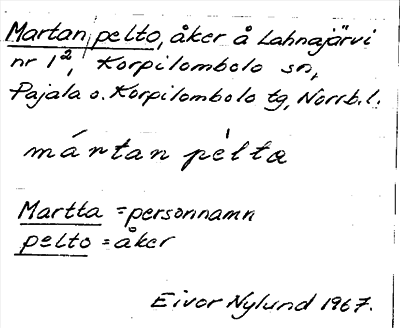 Martan|pelto, åker å Lahnajärvi
nr 1², Korpilombolo sn,
Pajala o. Korpilombolo tg, Norrb.l.
mártan pèlta
Martta = personnamn
pelto = åker
Eivor Nylund 1967.